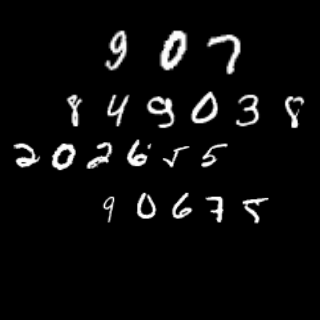 907
849038
202655
90675